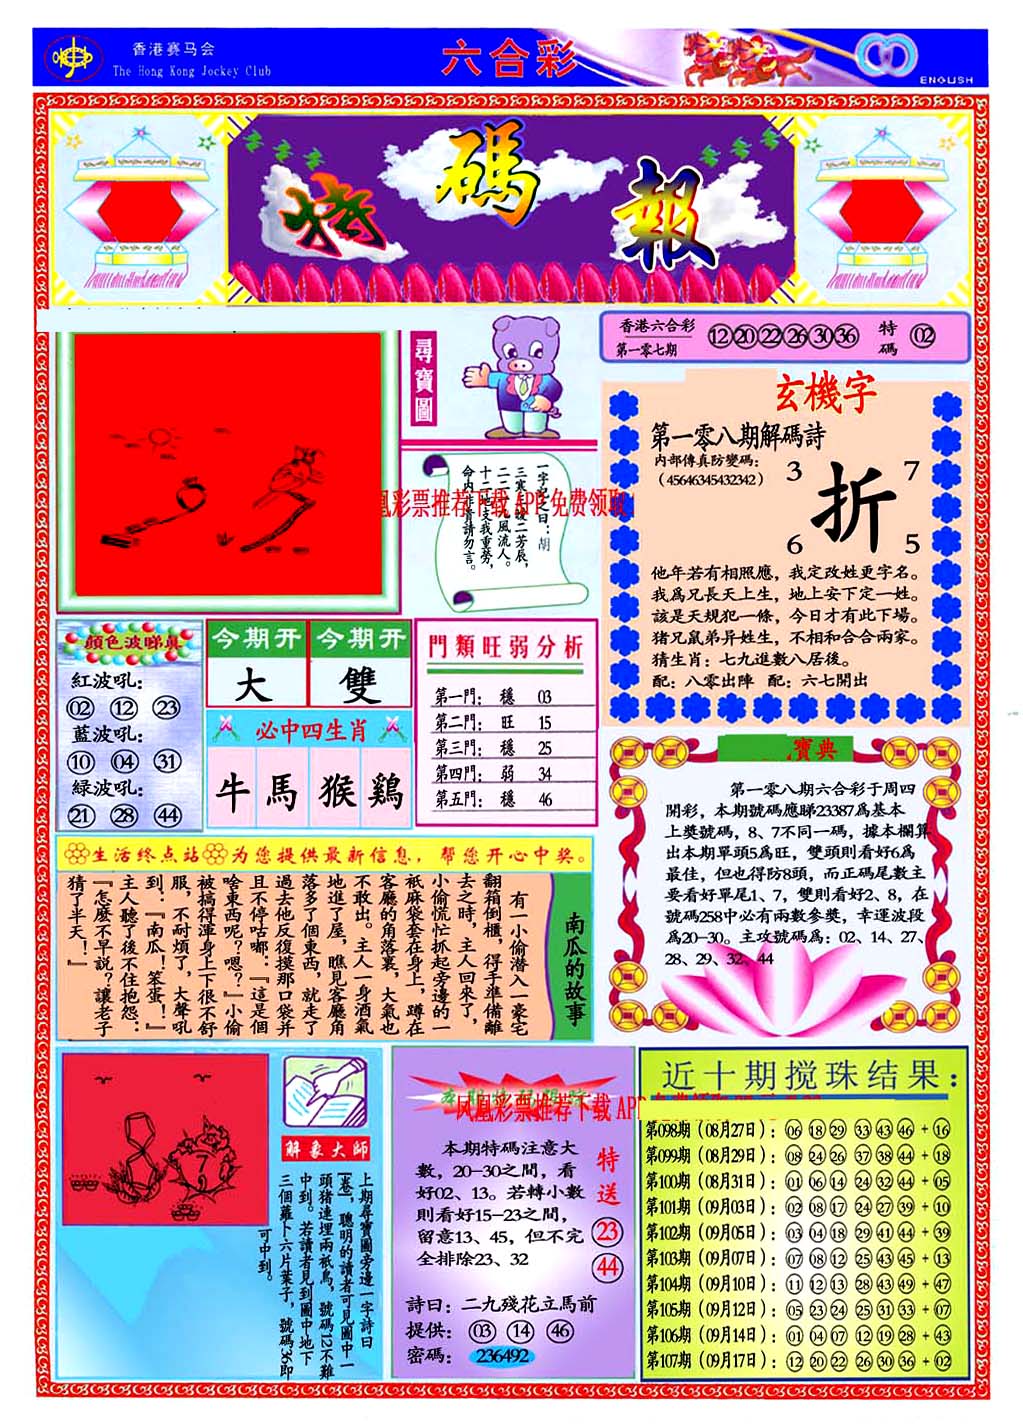 香港赛马会
The Hong Kong Jockey Club
六合彩
ENGLISH
特碼報
尋寶圖
一字記之曰：胡
三寒在發二芳辰，
二二一九風流人。
十二地支我重勞，
命内非肖請勿言。
凰彩票推荐下载 APP 免费领取
香港六合彩
第一零七期
12 20 22 26 30 36
特碼
02
玄機字
第一零八期解碼詩
内部傳真防變碼：
（45646345432342）
3 7
折
6 5
他年若有相照應，我定改姓更字名。
我爲兄長天上生，地上安下定一姓。
該是天規犯一條，今日才有此下場。
猪兄鼠弟异姓生，不相和合合兩家。
猜生肖：七九進數八居後。
配：八零出陣 配：六七開出
顔色波睇真
紅波吼：
02 12 23
藍波吼：
10 04 31
緑波吼：
21 28 44
今期开
大
今期开
雙
必中四生肖
牛 馬 猴 鷄
門類旺弱分析
第一門： 穩 03
第二門： 旺 15
第三門： 穩 25
第四門： 弱 34
第五門： 穩 46
寶典
第一零八期六合彩于周四
開彩，本期號碼應睇23387爲基本
上獎號碼，8、7不同一碼，據本欄算
出本期單頭5爲旺，雙頭則看好6爲
最佳，但也得防8頭，而正碼尾數主
要看好單尾1、7，雙則看好2、8，在
號碼258中必有兩數参獎，幸運波段
爲20—30。主攻號碼爲：02、14、27、
28、29、32、44
生活终点站 为您提供最新信息，帮您开心中奖。
南瓜的故事
有一小偷潜入一豪宅
翻箱倒櫃，得手準備離
去之時，主人回來了，
小偷慌忙抓起旁邊的一
衹麻袋套在身上，蹲在
客廳的角落裏，大氣也
不敢出。主人一身酒氣
地進了屋，瞧見客廳角
落多了個東西，就走了
過去他反復摸那口袋并
且不停咕嘟：『這是個
啥東西呢？嗯？』小偷
被搞得渾身上下很不舒
服，不耐煩了，大聲吼
到：『南瓜！笨蛋！』
主人聽了後不住抱怨：
『怎麽不早説？讓老子
猜了半天！』
解象大師
上期尋寶圖旁邊一字詩曰
［卷］，聰明的讀者可見圖中一
頭猪連埋兩衹鳥，號碼12不難
中到。若讀者見到圖中地下
三個蘿卜六片葉子，號碼36即
可中到。
凤凰彩票推荐下载 APP
本期特碼注意大
數，20—30之間，看
好02、13。若轉小數
則看好15—23之間，
留意13、45，但不完
全排除23、32
特送
23
44
詩曰：二九殘花立馬前
提供： 03 14 46
密碼： 236492
近十期搅珠结果：
第098期（08月27日）： 06 18 29 33 43 46 + 16
第099期（08月29日）： 08 24 26 37 38 44 + 18
第100期（08月31日）： 01 06 14 24 32 44 + 05
第101期（09月03日）： 02 08 17 24 27 39 + 10
第102期（09月05日）： 03 04 18 29 41 44 + 39
第103期（09月07日）： 07 08 12 25 43 45 + 13
第104期（09月10日）： 11 12 13 28 43 49 + 47
第105期（09月12日）： 05 23 24 25 31 33 + 07
第106期（09月14日）： 01 04 07 12 19 28 + 43
第107期（09月17日）： 12 20 22 26 30 36 + 02